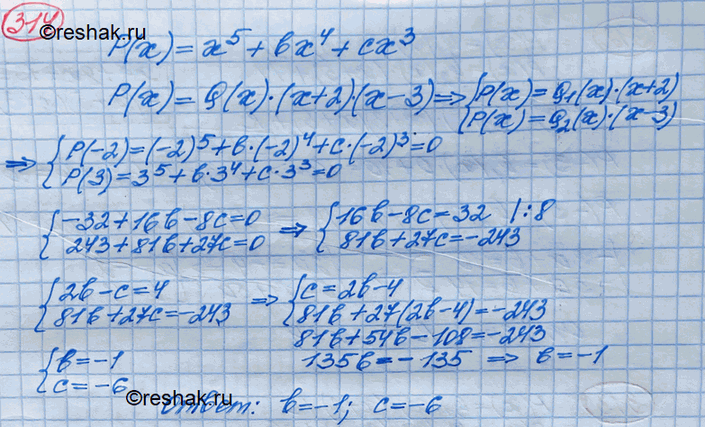 314 ©reshak.ru
P(x) = x⁵ + bx⁴ + cx³
P(x) = Q(x)·(x+2)(x-3) ⇒ {P(x) = Q₁(x)·(x+2)
{P(x) = Q₂(x)·(x-3)
⇒ {P(-2) = (-2)⁵ + b·(-2)⁴ + c·(-2)³ = 0
{P(3) = 3⁵ + b·3⁴ + c·3³ = 0
{-32 + 16b - 8c = 0 ⇒ {16b - 8c = 32 |:8
{243 + 81b + 27c = 0 {81b + 27c = -243
{2b - c = 4 ⇒ {c = 2b - 4
{81b + 27c = -243 {81b + 27(2b - 4) = -243
81b + 54b - 108 = -243
{b = -1 135b = -135 ⇒ b = -1
{c = -6
©reshak.ru
Ответ: b = -1; c = -6